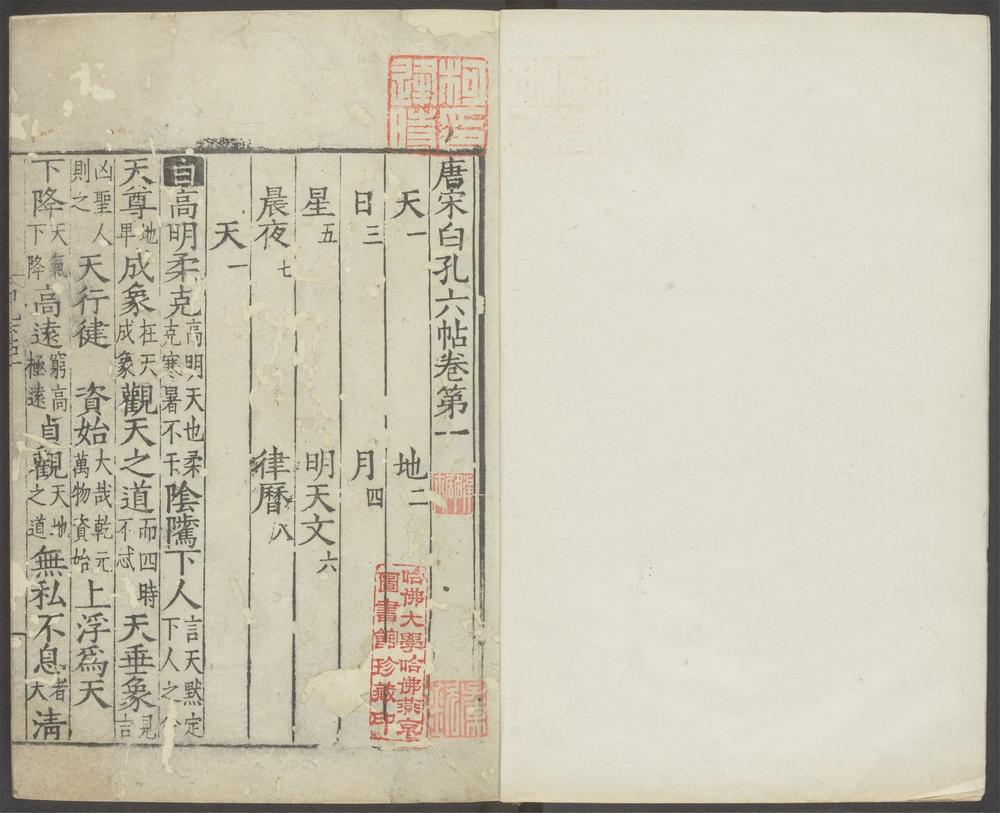 唐宋白孔六帖卷第一
天一 地二
日三 月四
星五 明天文六
晨夜七 律曆八
天一
白高明柔克高明天也柔克寒暑不干陰騭下人言天默定下人之分
天尊地卑成象在天成象觀天之道而四時不忒天垂象見吉
凶聖人則之天行健 資始大哉乾元萬物資始上浮爲天
下降天氣下降高遠窮高極遠貞觀天地之道無私不息者大清
哈佛大學哈佛燕京
圖書館珍藏印